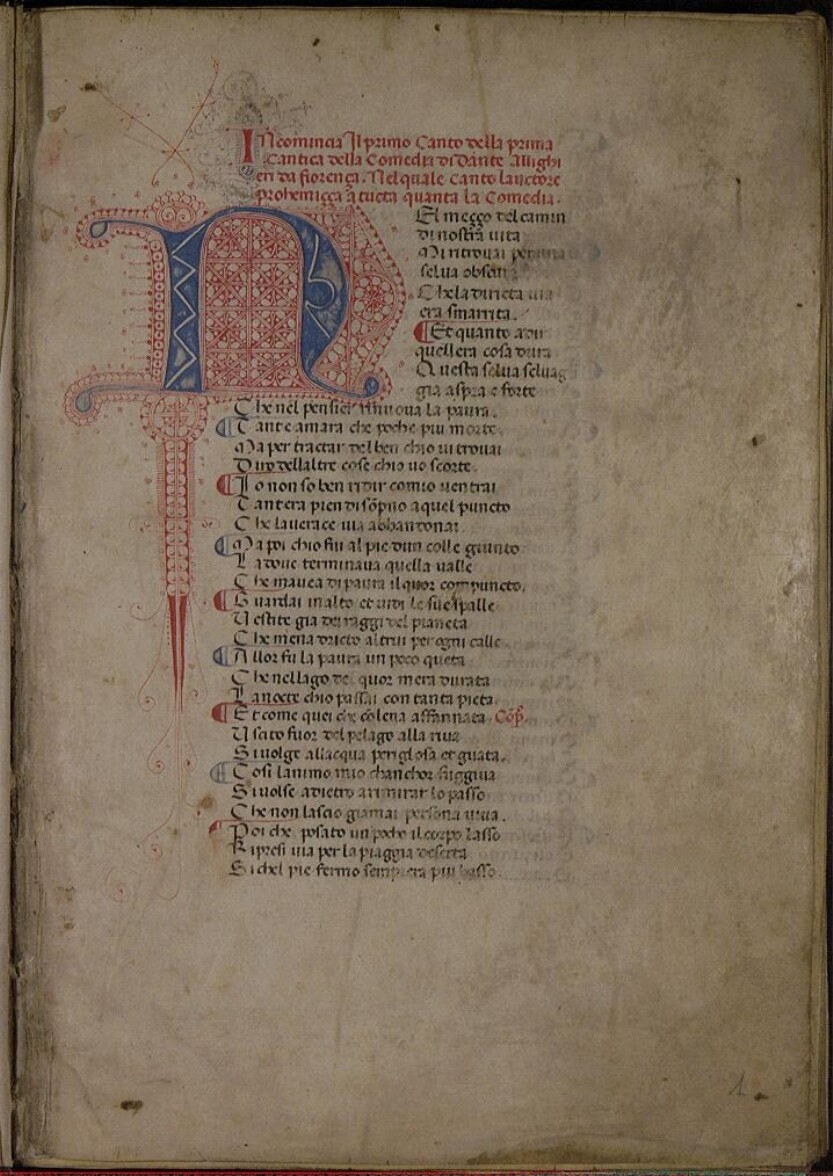 INcomincia Il primo Canto della prima
Cantica della Comedia di Dante Allighi
eri da fiorença. Nel quale Canto lauctore
prohemiçça a tucta quanta la Comedia.
NEl meçço del camin
di nostra uita
Mi ritrouai per una
selua obscura
Che la diricta uia
era smarrita.
Et quanto a dir
quellera cosa dura
Questa selua seluag
gia aspra e forte
Che nel pensier rinuoua la paura.
Tante amara che poche piu morte.
Ma per tractar del ben chio ui trouai
Diro dellaltre cose chio uo scorte.
Io non so ben ridir comio uentrai
Tantera pien di sopno a quel puncto
Che lauerace uia abbandonai.
Ma poi chio fui al pie dun colle giunto
La doue terminaua quella ualle
Che mauea di paura il quor compuncto.
Guardai in alto et uidi le sue spalle
Uestite gia dei raggi del pianeta
Che mena dricto altrui per ogni calle.
Allor fu la paura un poco queta
Che nel lago del quor mera durata
La nocte chio passai con tanta pieta.
Et come quei che con lena affannata. Cōp.
Uscito fuor del pelago alla riua
Si uolge allacqua perigliosa et guata.
Cosi lanimo mio chanchor fuggiua
Si uolse a dietro a rimirar lo passo
Che non lascio giamai persona uiua.
Poi che posato un poco il corpo lasso
Ripresi uia per la piaggia deserta
Si chel pie fermo sempre era piu basso.
1